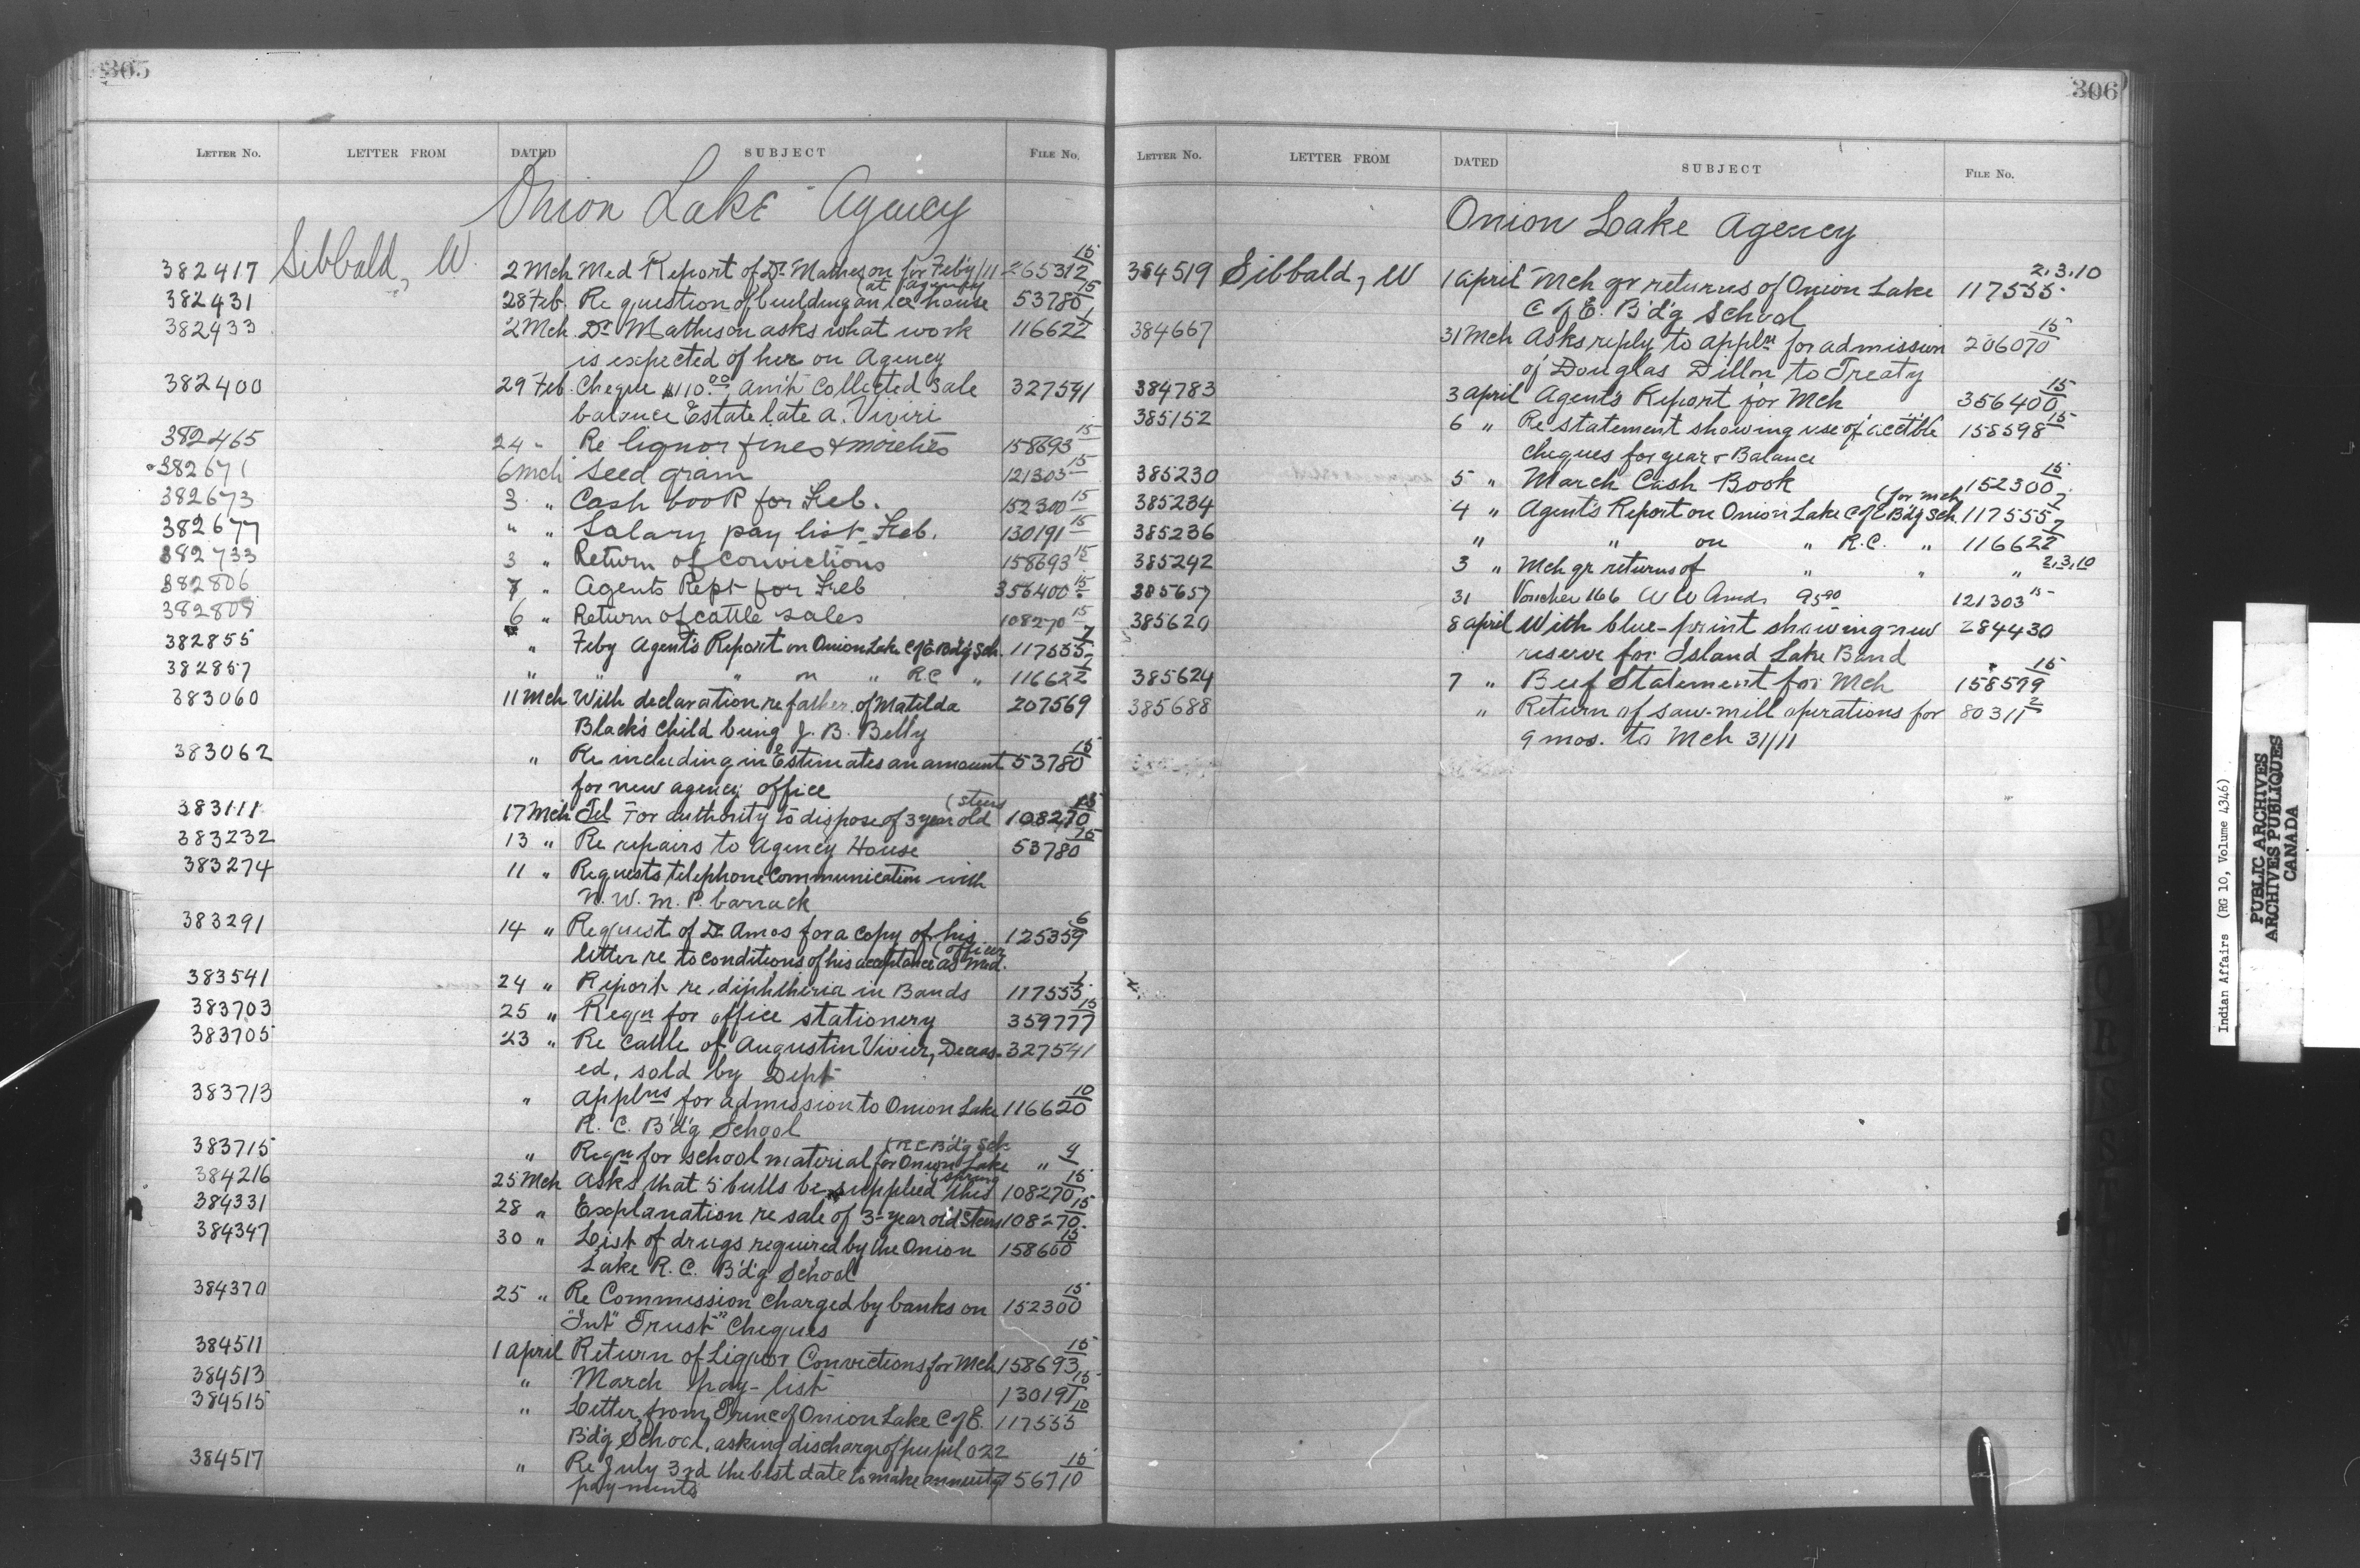 305
LETTER NO. LETTER FROM DATED SUBJECT FILE NO.
Onion Lake Agency
382417 Sibbald, W. 2 Mch Med Report of Dr Matheson for Feb'y/11 265312 15
(at agency
382431 28 Feb. Re question of building an Ice house 53780 15
382433 2 Mch. Dr Matheson asks what work 116622 1
is expected of her on Agency
382400 29 Feb. Cheque $110.00 am't Collected sale 327591
balance Estate late A. Viviri
382465 24 " Re liquor fines & moieties 158693 15
382671 6 Mch Seed grain 121303 15
382673 3 " Cash book for Feb. 152300 15
382677 " " Salary pay list Feb. 130191 15
382733 3 " Return of convictions 158693 15
382806 7 " Agents Rept for Feb 356400 15
382809 6 " Return of cattle sales 108270 15
382855 " Feby Agent's Report on Onion Lake C of E Bd'g Sch. 117555 7
382857 " " " on " RC " 116622 7
383060 11 Mch With declaration re father of Matilda 207569
Black's Child being J. B. Belly
383062 " Re including in Estimates an amount 53780 15
for new agency office
(steers
383111 17 Mch Tel For authority to dispose of 3 year old 108270 15
383232 13 " Re repairs to Agency House 53780 15
383274 11 " Requests telephone Communication with
N. W. M. P. barrack
383291 14 " Request of Dr Amos for a copy of his 125359 6
(officer
letter re to conditions of his acceptance as Med.
383541 24 " Report re diphtheria in Bands 117555 1
383703 25 " Reqn for office stationery 359777 15
383705 23 " Re Cattle of Augustin Vivier, Deceas- 327541
ed, sold by Dept
383713 " applns for admission to Onion Lake 116620 10
R. C. B'd'g School
(RC B'd'g Sch
383715 " Reqn for school material for Onion Lake " 4
(spring
384216 25 Mch Asks that 5 bulls be supplied this 108270 15
384331 28 " Explanation re sale of 3-year old steers 108270. 15
384347 30 " List of drugs required by the Onion 158600 15
Lake R. C. B'd'g School
384370 25 " Re Commission Charged by banks on 152300 15
"Int" Trust" Cheques
384511 1 April Return of Liquor Convictions for Mch 158693 15
384513 " March pay-list 130191 15
384515 " Letter from Princ of Onion Lake C of E. 117555 10
Bd'g School, asking discharge of pupil 022
384517 " Re July 3rd the best date to make annuity 156710 15
payments
306
LETTER NO. LETTER FROM DATED SUBJECT FILE NO.
Onion Lake Agency
384519 Sibbald, W 1 April Mch qr returns of Onion Lake 117555 2.3.10
C of E. B'd'g School
384667 31 Mch Asks reply to appln for admission 206070 15
of Douglas Dillon to Treaty
384783 3 April Agent's Report for Mch 356400 15
385152 6 " Re statement showing use of acctble 158598 15
cheques for year & Balance
385230 5 " March Cash Book 152300 15
(for mch
385234 4 " Agent's Report on Onion Lake C of E Bd'g Sch. 117555 7
385236 " " on " R.C. " 116622 7
385242 3 " Mch qr returns of " " " 2.3.10
385657 31 Voucher 166 W W Amos 95.90 121303 15
385620 8 April With blue-print showing new 284430
reserve for Island Lake Band
385624 7 " Beef Statement for Mch 158599 15
385688 " Return of saw-mill operations for 80311 2
9 mos. to Mch 31/11
Indian Affairs (RG 10, Volume 4346)
PUBLIC ARCHIVES
ARCHIVES PUBLIQUES
CANADA